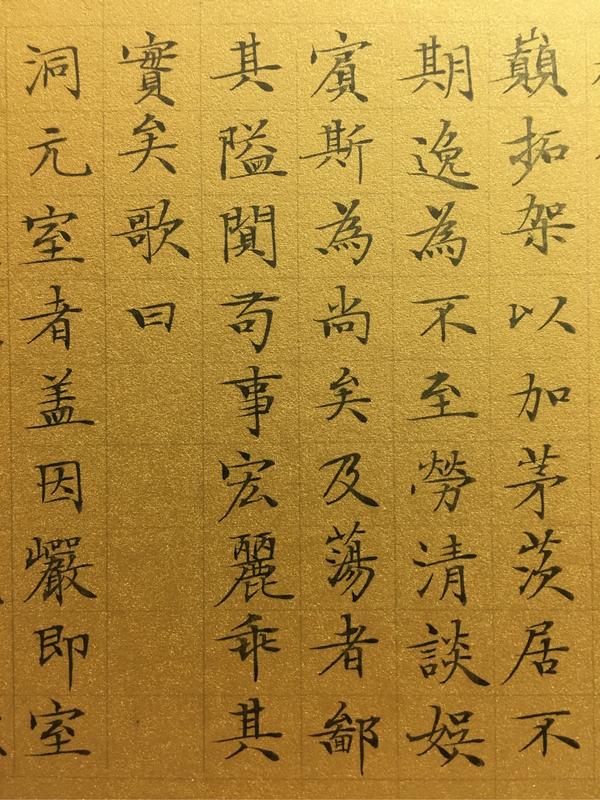 巔拓架以加茅茨居不
期逸為不至勞清談娛
賓斯為尚矣及蕩者鄙
其隘閴苟事宏麗乖其
實矣歌曰
洞元室者盖因巖即室